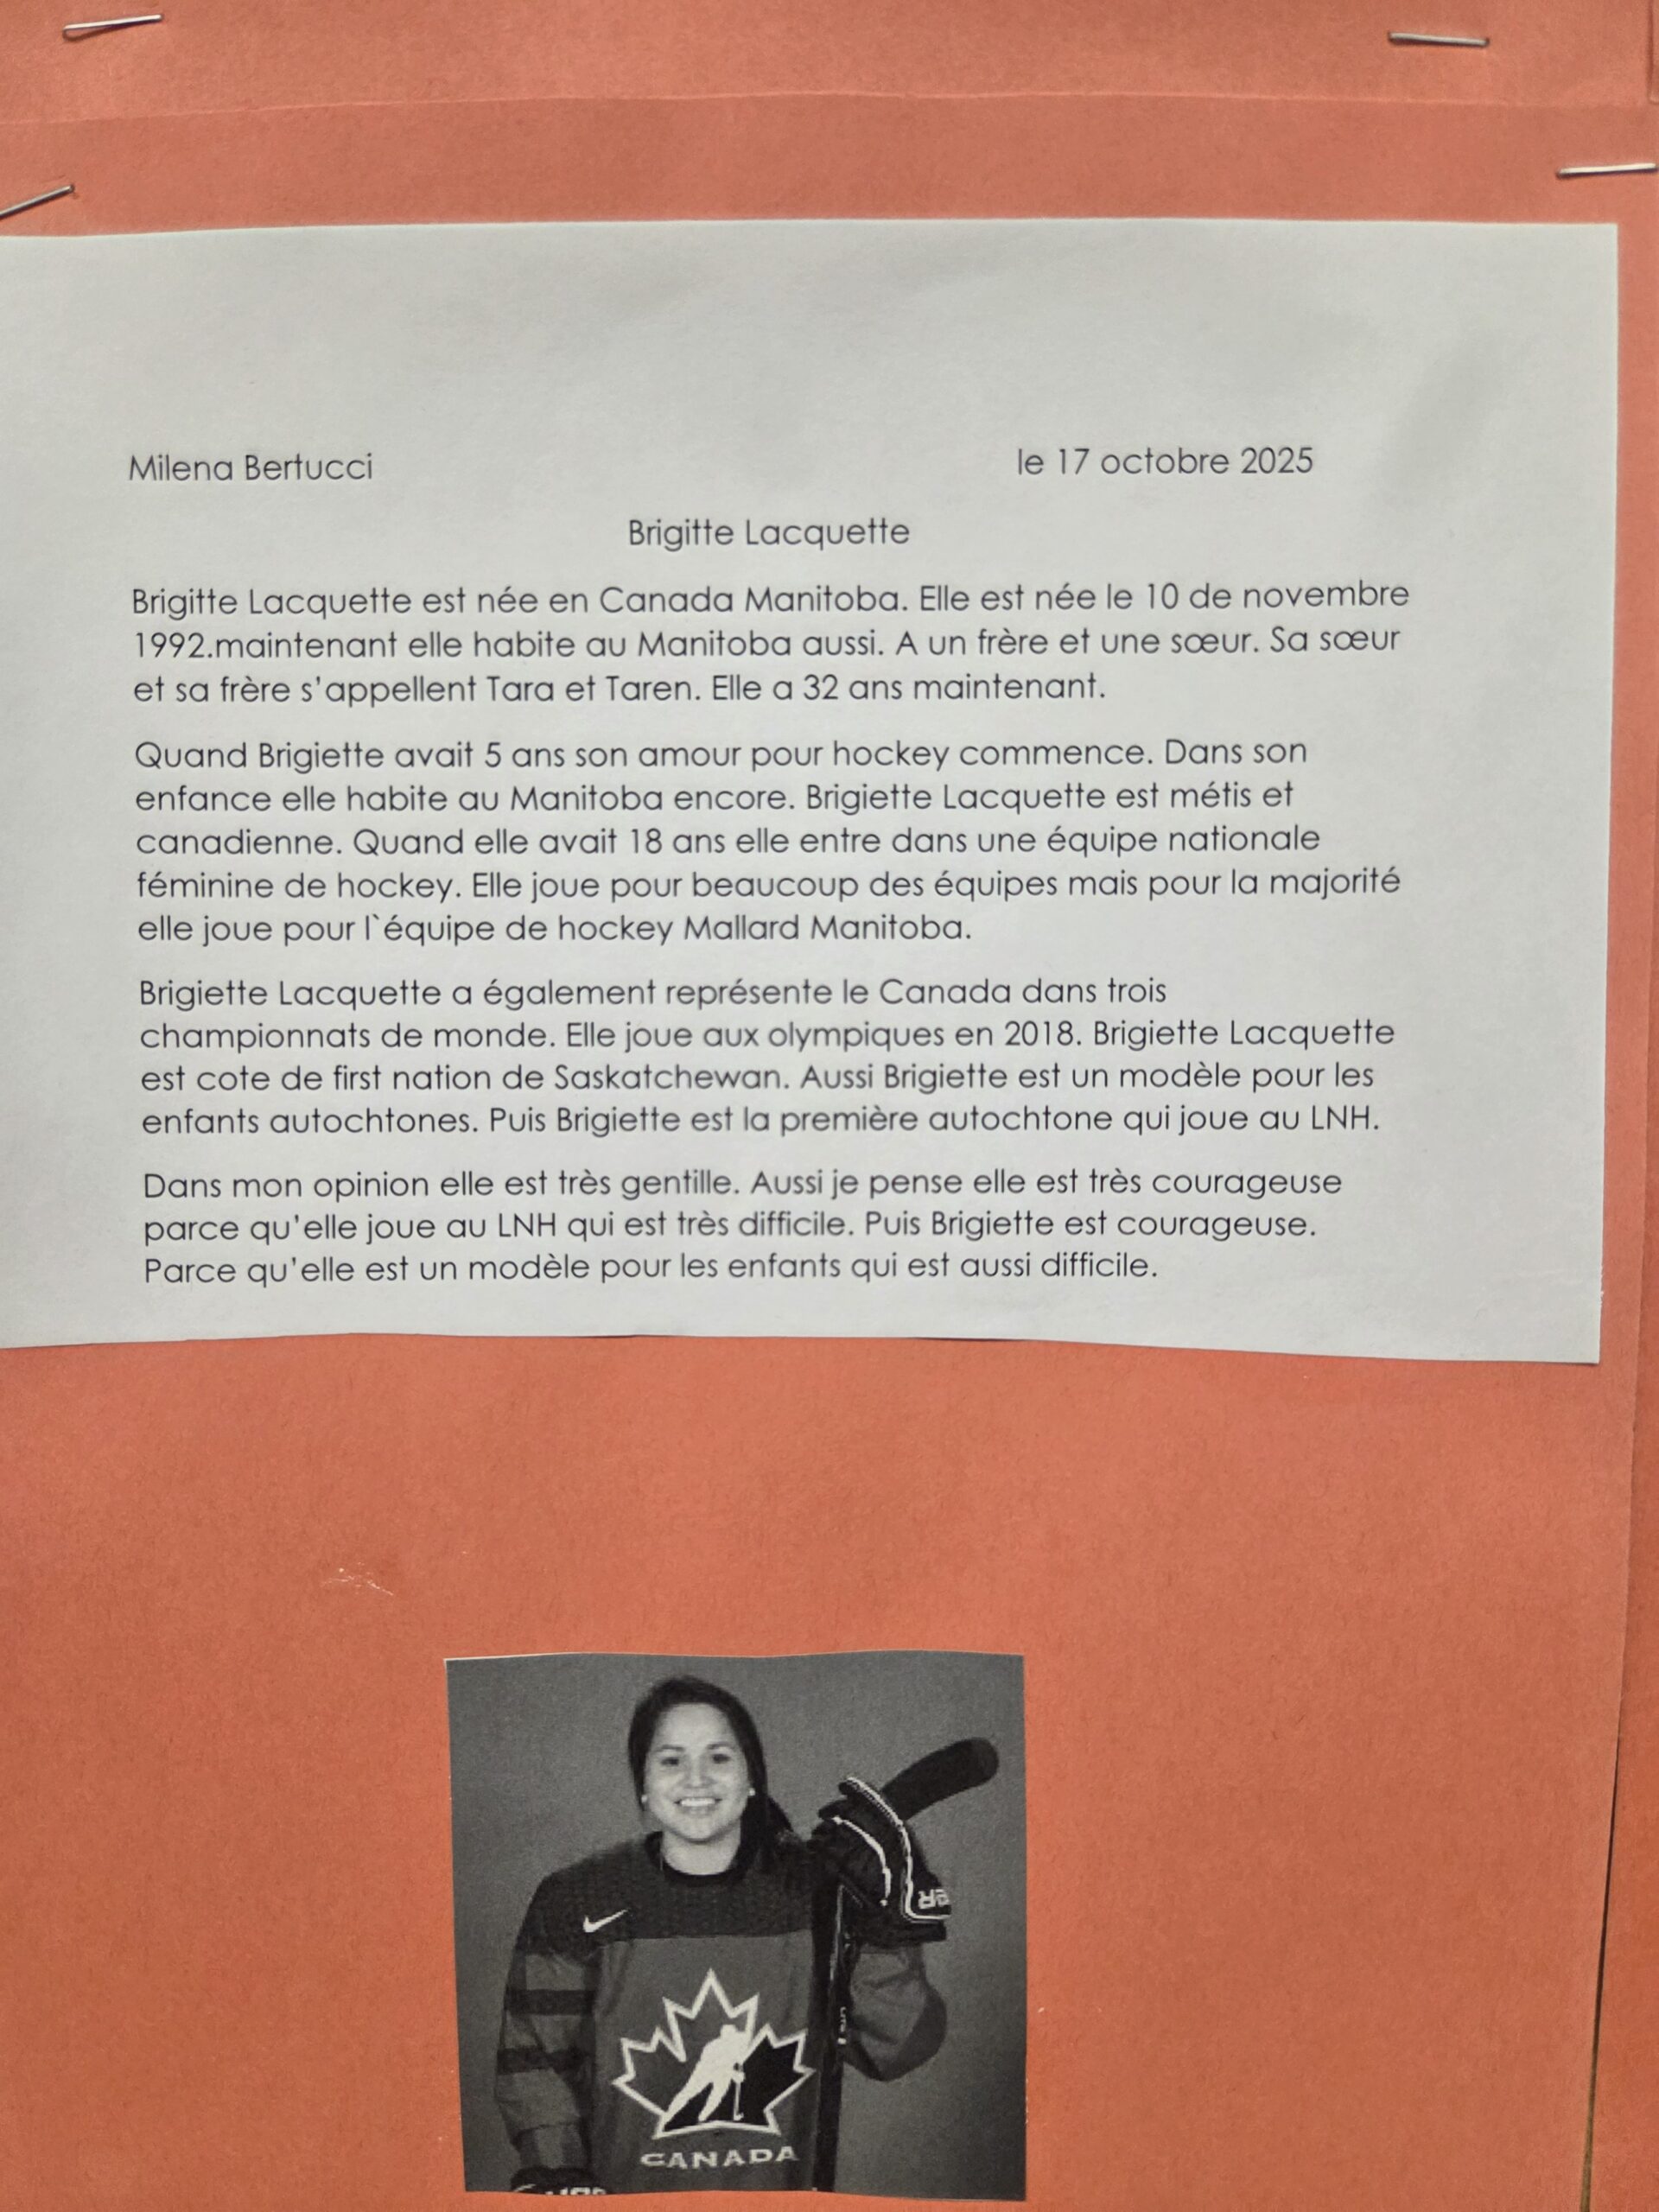 Milena Bertucci le 17 octobre 2025
Brigitte Lacquette
Brigitte Lacquette est née en Canada Manitoba. Elle est née le 10 de novembre
1992.maintenant elle habite au Manitoba aussi. A un frère et une sœur. Sa sœur
et sa frère s'appellent Tara et Taren. Elle a 32 ans maintenant.
Quand Brigiette avait 5 ans son amour pour hockey commence. Dans son
enfance elle habite au Manitoba encore. Brigiette Lacquette est métis et
canadienne. Quand elle avait 18 ans elle entre dans une équipe nationale
féminine de hockey. Elle joue pour beaucoup des équipes mais pour la majorité
elle joue pour l`équipe de hockey Mallard Manitoba.
Brigiette Lacquette a également représente le Canada dans trois
championnats de monde. Elle joue aux olympiques en 2018. Brigiette Lacquette
est cote de first nation de Saskatchewan. Aussi Brigiette est un modèle pour les
enfants autochtones. Puis Brigiette est la première autochtone qui joue au LNH.
Dans mon opinion elle est très gentille. Aussi je pense elle est très courageuse
parce qu'elle joue au LNH qui est très difficile. Puis Brigiette est courageuse.
Parce qu'elle est un modèle pour les enfants qui est aussi difficile.
CANADA